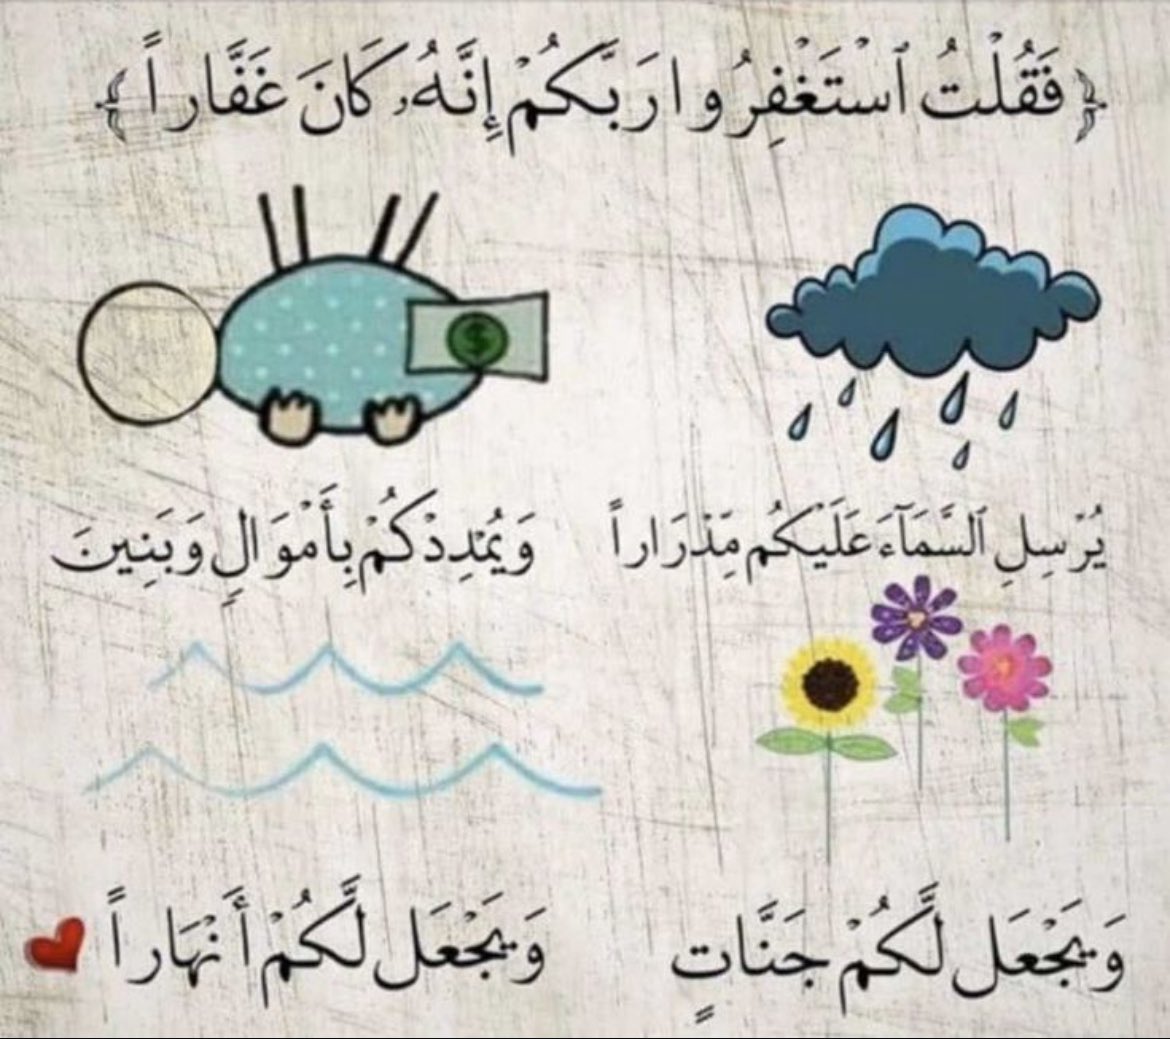 ﴿ فَقُلْتُ ٱسْتَغْفِرُوا رَبَّكُمْ إِنَّهُۥ كَانَ غَفَّاراً ﴾
يُرْسِلِ ٱلسَّمَآءَ عَلَيْكُم مِّدْرَاراً
وَيُمْدِدْكُمْ بِأَمْوَالٍ وَبَنِينَ
وَيَجْعَل لَّكُمْ جَنَّاتٍ
وَيَجْعَل لَّكُمْ أَنْهَاراً